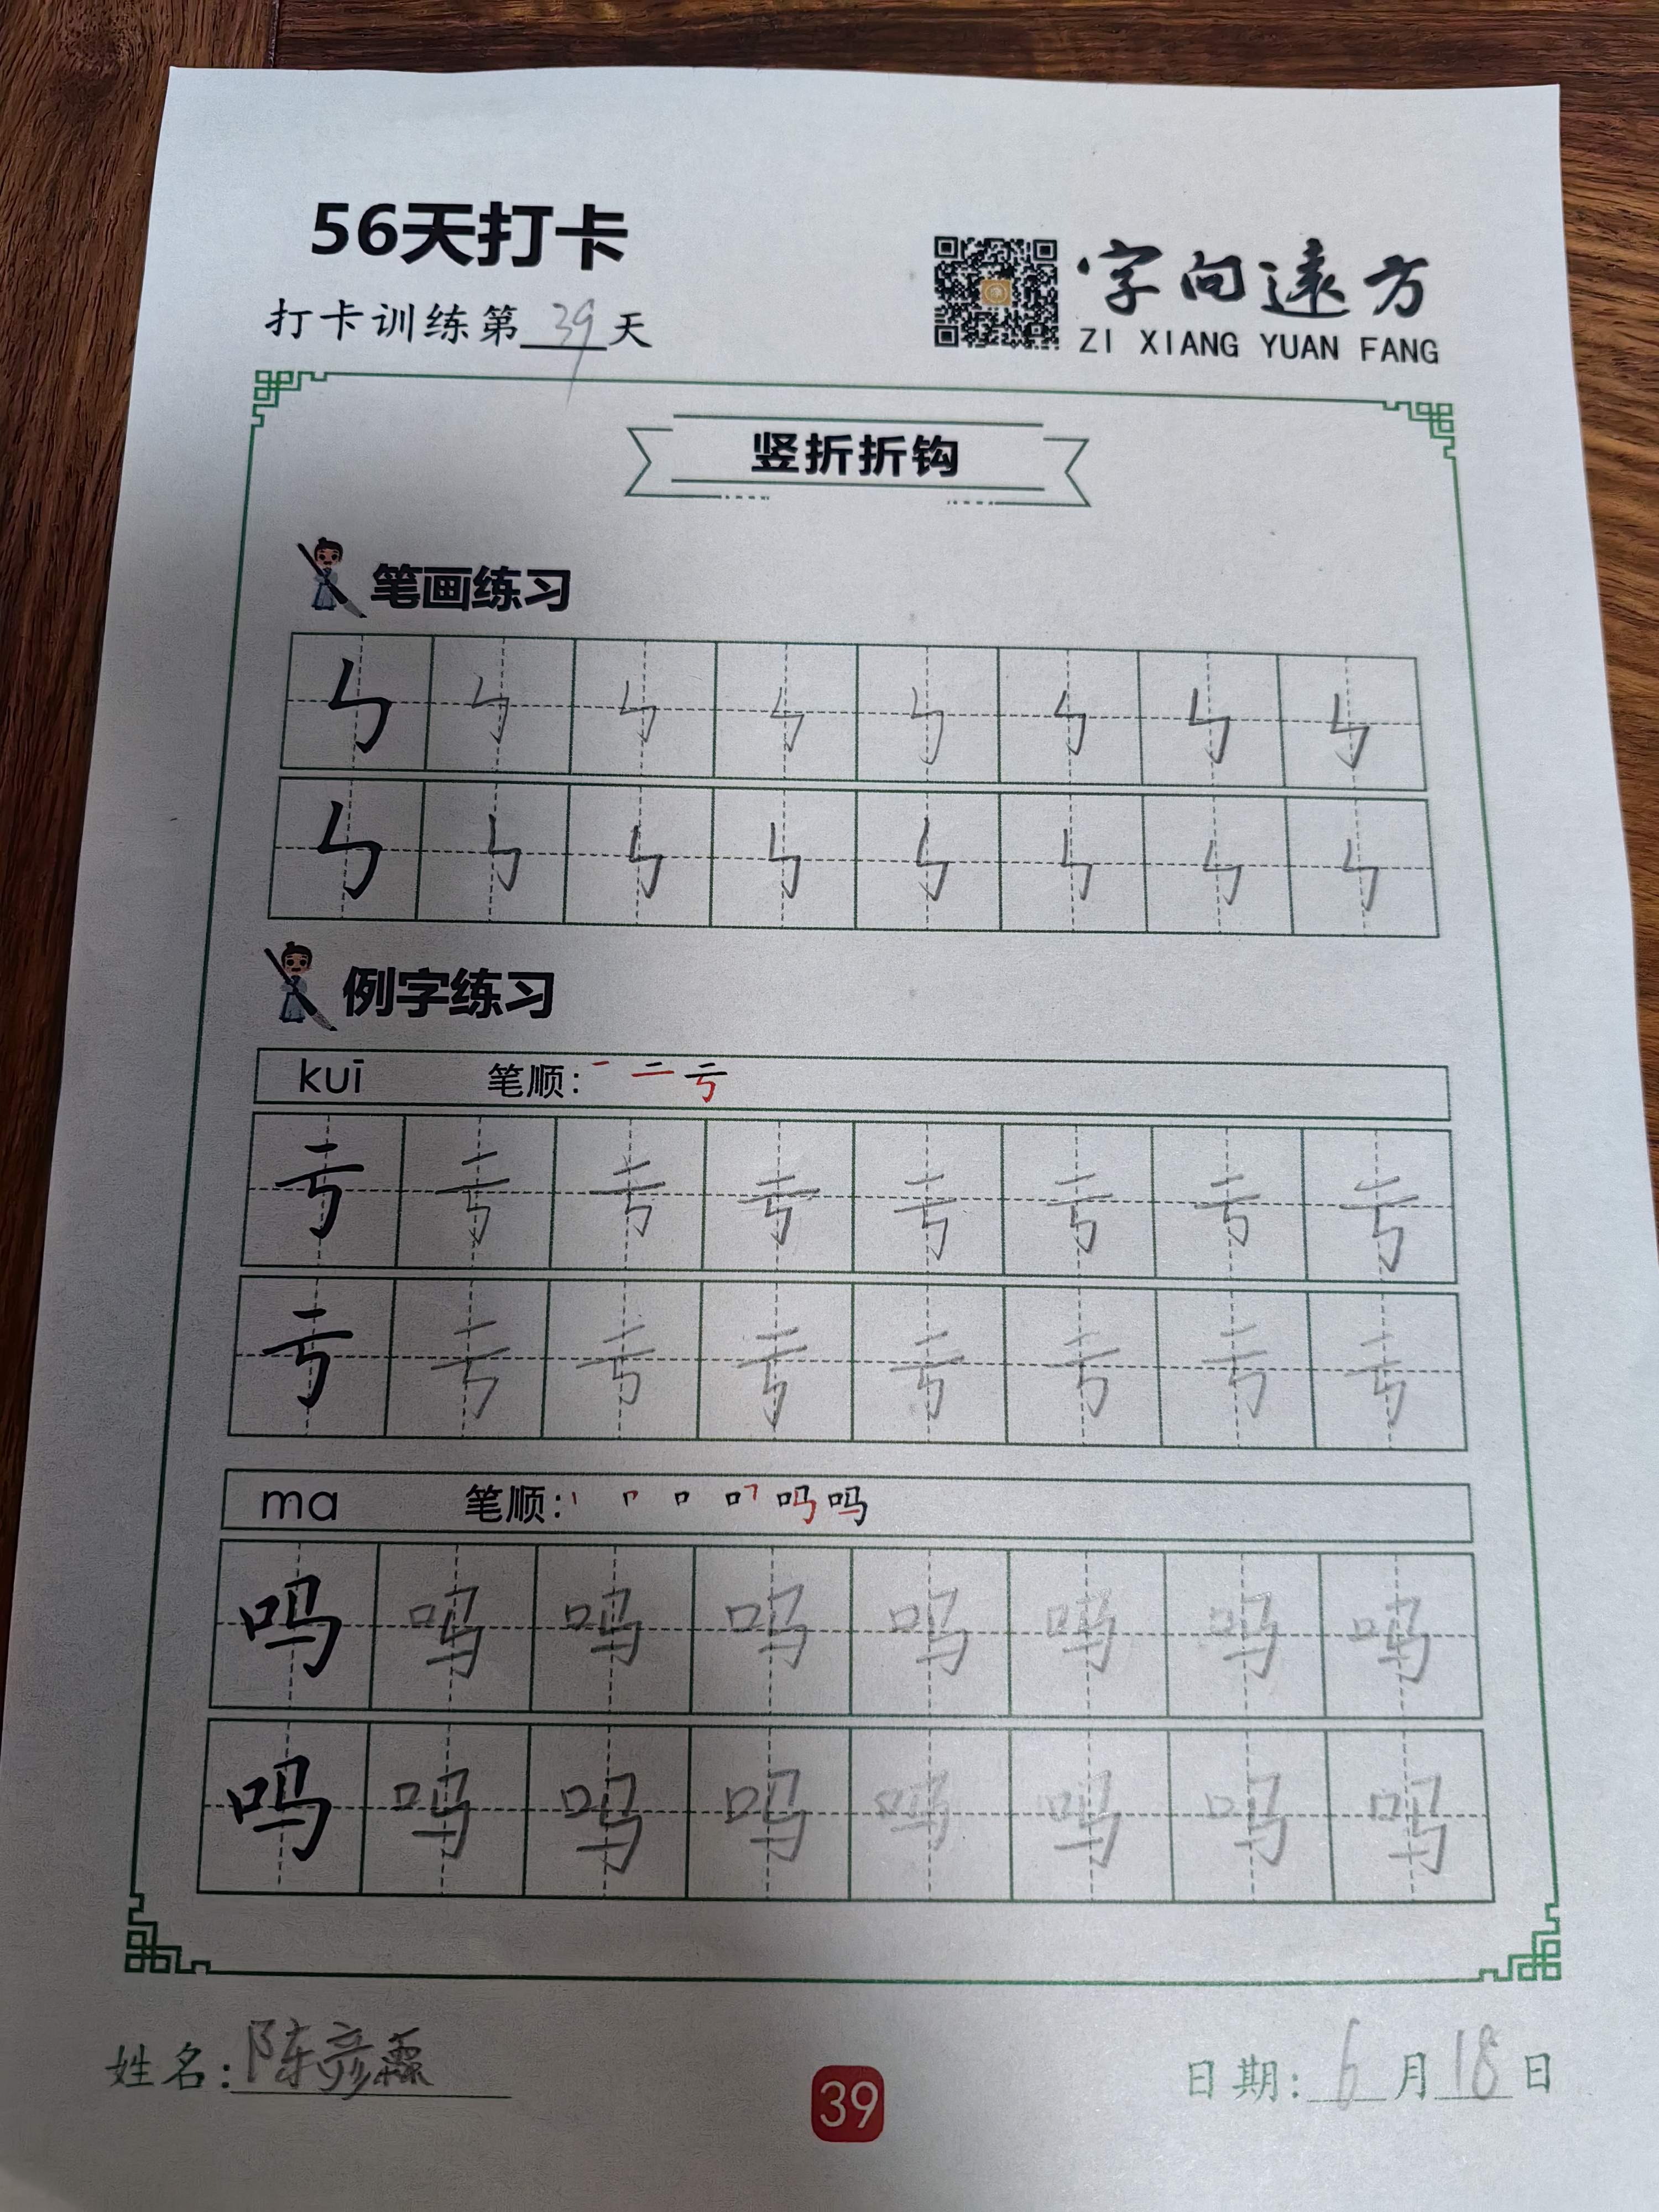 56天打卡
打卡训练第39天
字向远方
ZI XIANG YUAN FANG
竖折折钩
笔画练习
ㄣ ㄣ ㄣ ㄣ ㄣ ㄣ ㄣ ㄣ
ㄣ ㄣ ㄣ ㄣ ㄣ ㄣ ㄣ ㄣ
例字练习
kuī 笔顺: 一 二 亏
亏 亏 亏 亏 亏 亏 亏 亏
亏 亏 亏 亏 亏 亏 亏 亏
ma 笔顺: 丨 口 吗 吗
吗 吗 吗 吗 吗 吗 吗 吗
吗 吗 吗 吗 吗 吗 吗 吗
姓名:陈彦霖
39
日期:6月18日